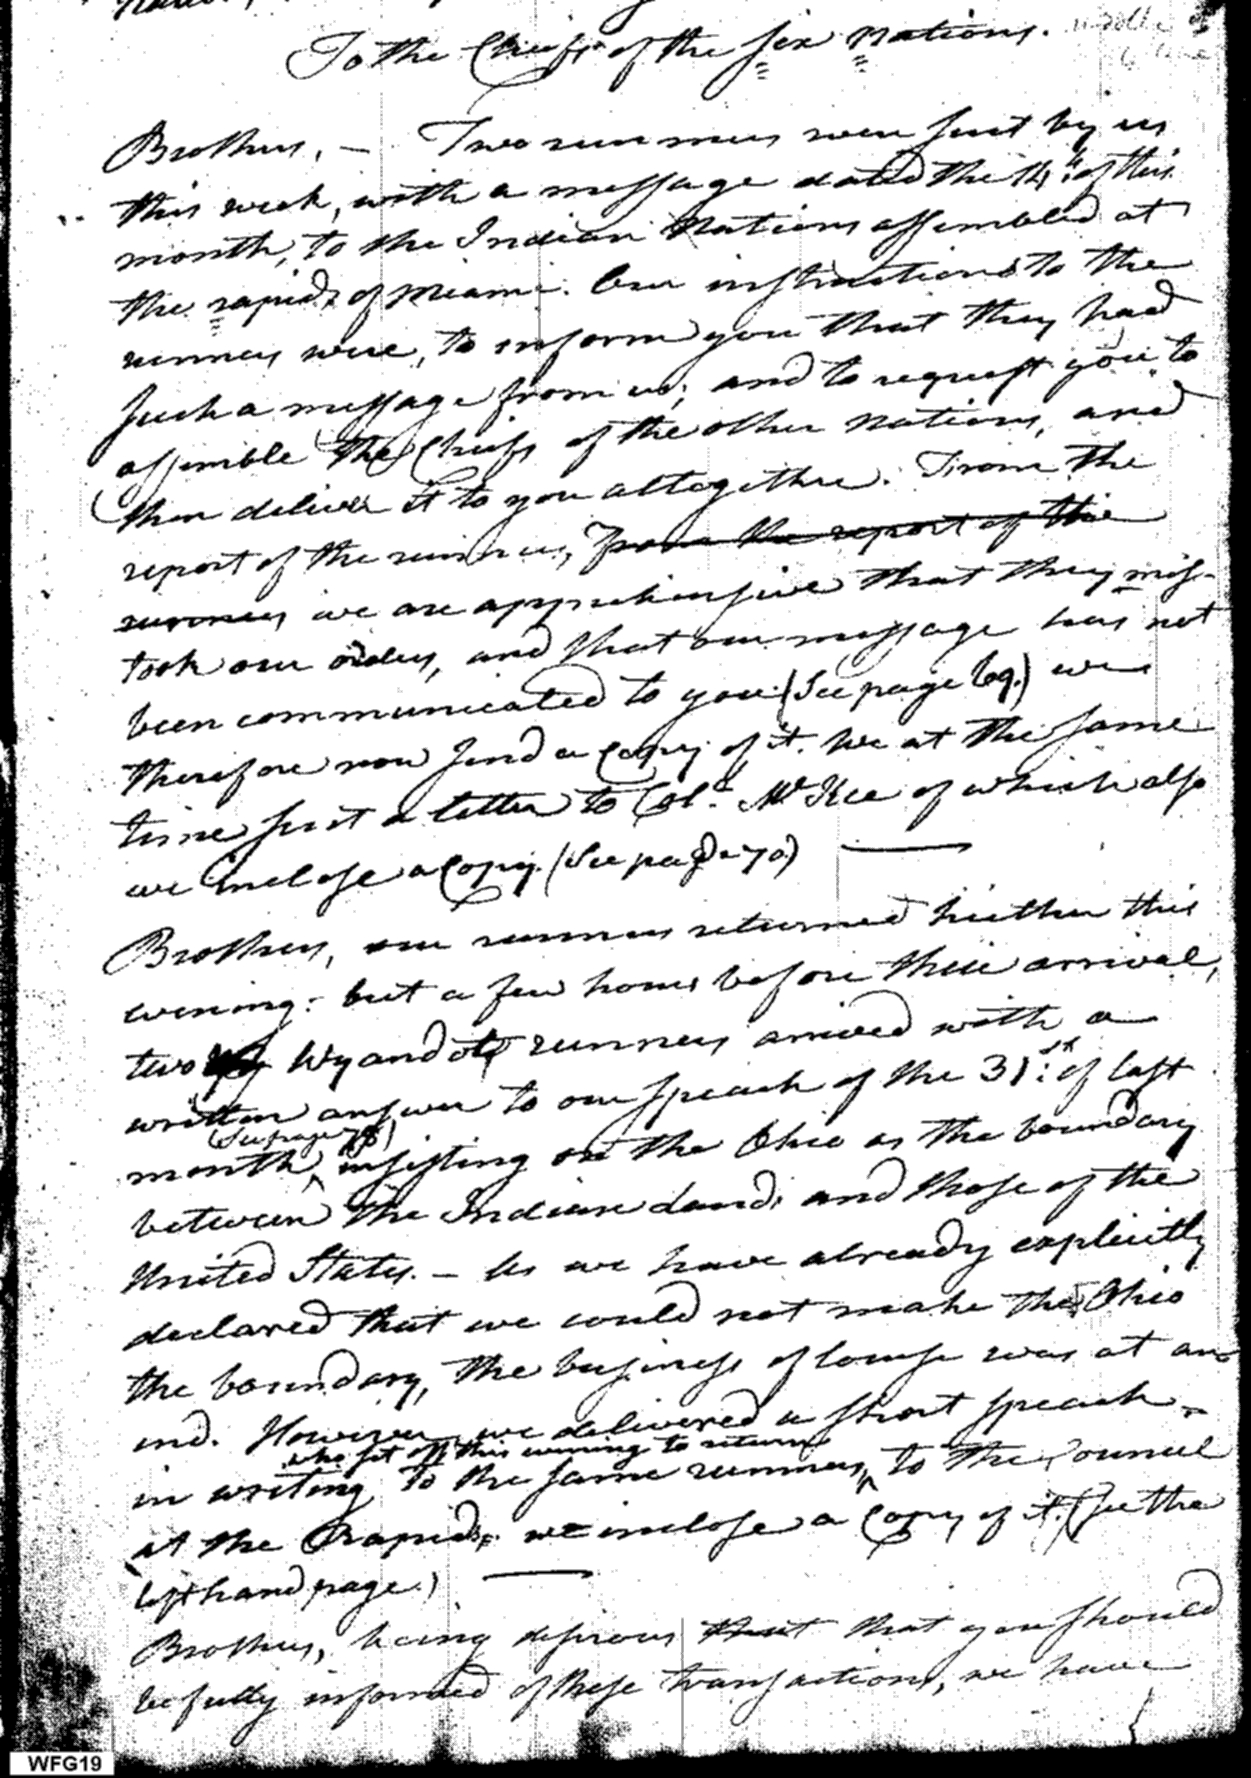 To the Chiefs of the six nations.
Brothers, — Two runners were sent by us
this week, with a message dated the 14th of this
month, to the Indian Nations assembled at
the rapids of Miami. Our instructions to the
runners were, to inform you that they had
such a message from us; and to request you to
assemble the Chiefs of the other nations, and
then deliver it to you altogether. From the
report of the runners, from the report of the
runners we are apprehensive that they mis-
took our orders, and that our message has not
been communicated to you (See page 69.) we
therefore now send a Copy of it. We at the same
time sent a letter to Colo. McKee of which also
we inclose a Copy. (See page 70.) —
Brothers, our runners returned hither this
evening: but a few hours before their arrival,
two Wyandot runners arrived with a
written answer to our speech of the 31st of last
(See page 78)
month, insisting on the Ohio as the boundary
between the Indian Lands and those of the
United States. — As we have already explicitly
declared that we could not make the Ohio
the boundary, the business of course was at an
end. However, we delivered a short speech
who set off this evening to return
in writing to the same runners, to the Council
at the Rapids. we inclose a Copy of it. (See the
left hand page.) —
Brothers, being desirous that that you should
be fully informed of these transactions, we have
WFG19